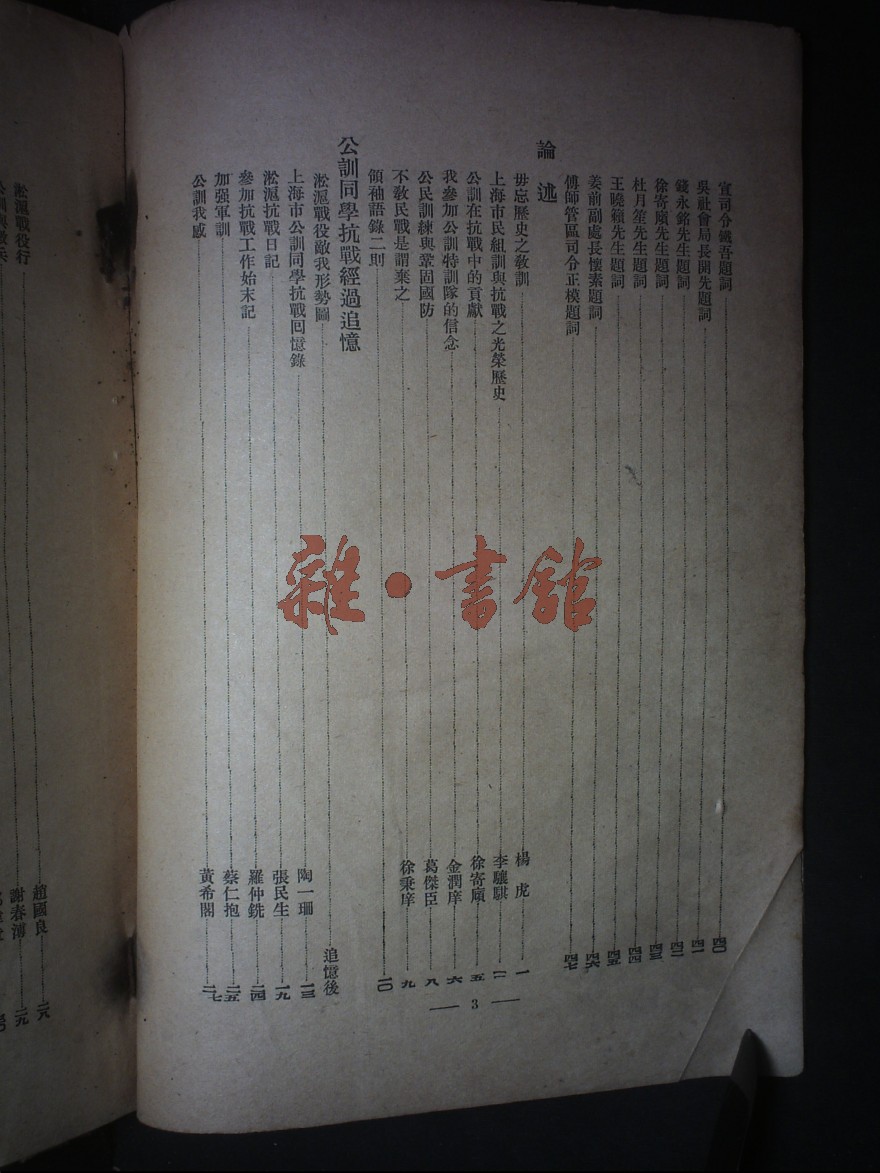 宣司令鐵吾題詞 四〇
吳社會局長開先題詞 四一
錢永銘先生題詞 四二
徐寄廎先生題詞 四三
杜月笙先生題詞 四四
王曉籟先生題詞 四五
姜前副處長懷素題詞 四六
傅師管區司令正模題詞 四七
論述
毋忘歷史之教訓 楊虎 一
上海市民組訓與抗戰之光榮歷史 李驤騏 二
公訓在抗戰中的貢獻 徐寄廎 五
我參加公訓特訓隊的信念 金潤庠 六
公民訓練與鞏固國防 葛傑臣 八
不教民戰是謂棄之 徐秉庠 九
領袖語錄二則 一〇
公訓同學抗戰經過追憶
淞滬戰役敵我形勢圖 追憶後
上海市公訓同學抗戰回憶錄 陶一珊 一三
淞滬抗戰日記 張民生 一九
參加抗戰工作始末記 羅仲銑 二四
加强軍訓 蔡仁抱 二五
公訓我感 黃希閣 二七
淞滬戰役行 趙國良 二八
謝春溥 二九
3
雜·書館